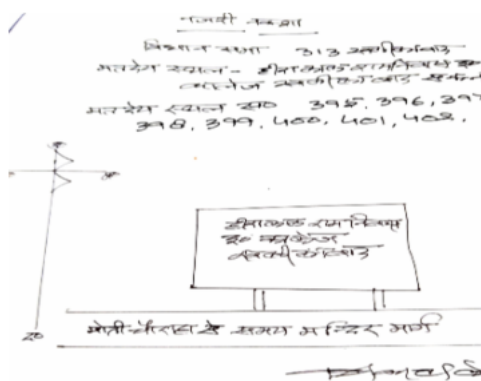 नजरी नक्शा
विधान सभा 313 खलीलाबाद
मतदेय स्थल - हीरालाल रामनिवास इ०
कालेज खलीलाबाद
मतदेय स्थल सं० 395, 396, 397
398, 399, 400, 401, 402,
हीरालाल राम निवास
इ० कालेज
खलीलाबाद
द०
मोती चौराहा से समय मन्दिर मार्ग